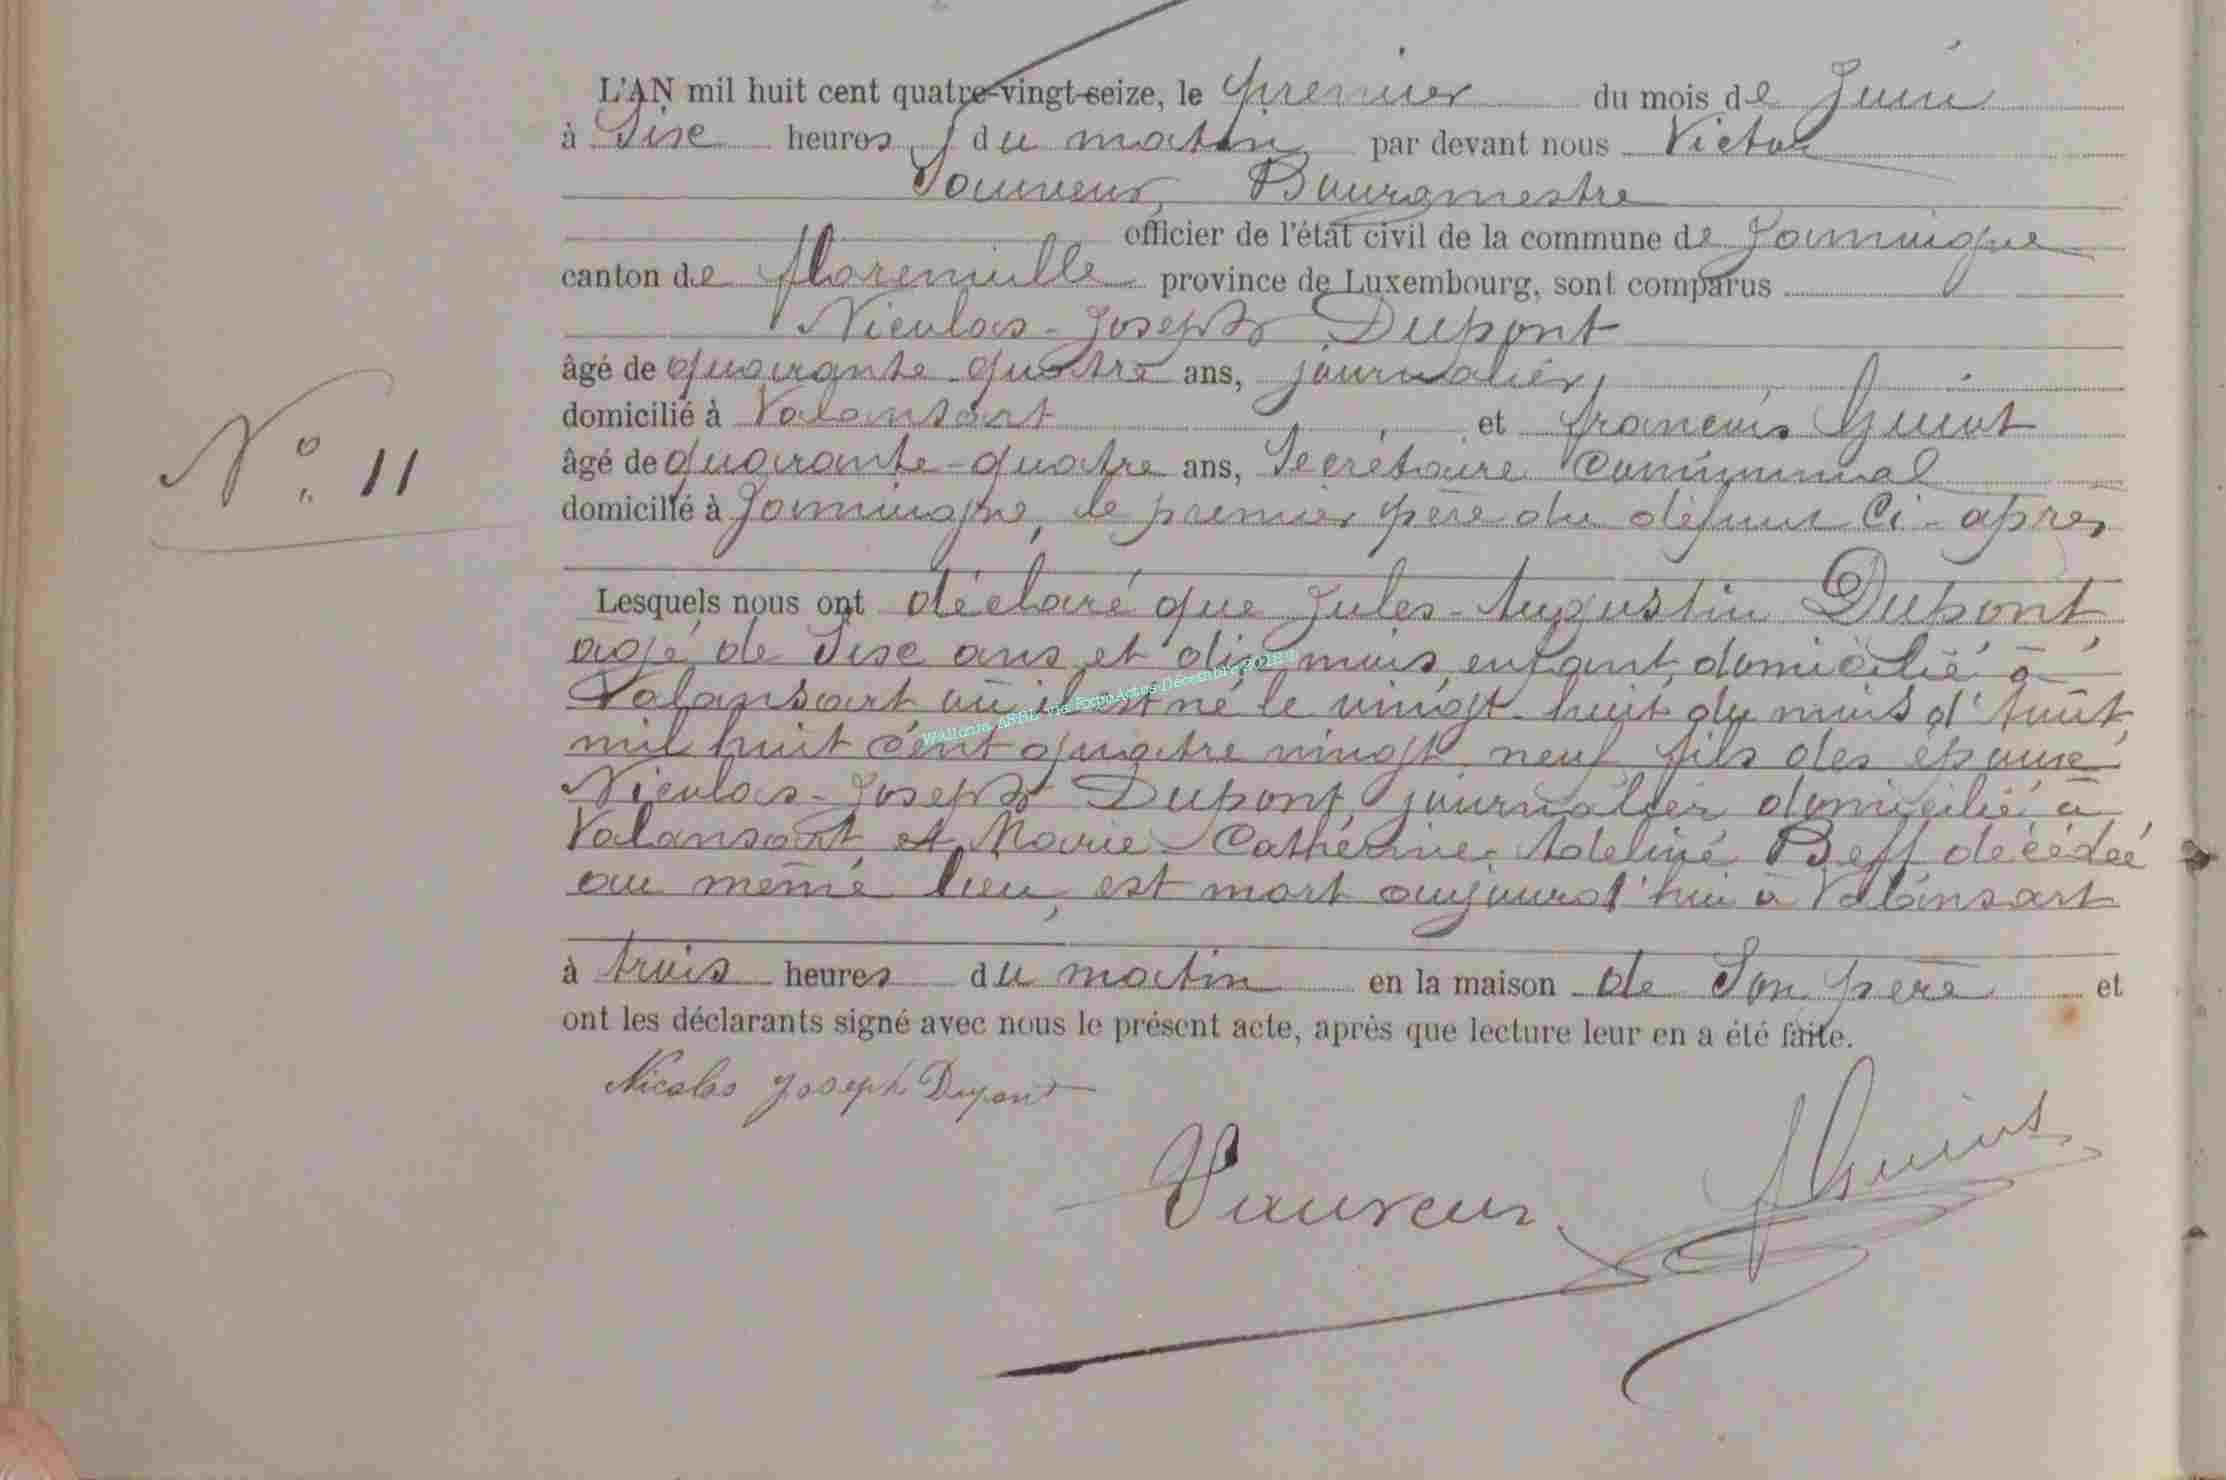 L'AN mil huit cent quatre-vingt-seize, le premier du mois de Juin
à Sise heures du matin par devant nous Victor
Sauveur, Bourgmestre
officier de l'état civil de la commune de Jamoigne
canton de florenville province de Luxembourg, sont comparus
Nicolas-Joseph Dupont
âgé de quarante-quatre ans, journalier,
domicilié à Valansart et françois Guiot
âgé de quarante-quatre ans, Secrétaire Communal
domicilié à Jamoigne, le premier père du défunt Ci-après,
N° 11
Lesquels nous ont déclaré que Jules-Augustin Dupont
agé de Sise ans et dix mois, enfant, domicilié à
Valansart où il est né le vingt-huit du mois d'Août
mil huit cent quatre vingt neuf, fils des époux
Nicolas-Joseph Dupont, journalier domicilié à
Valansart et Marie-Cathérine-Adeline Beff décédée
au même lieu, est mort aujourd'hui à Valansart
à trois heures du matin en la maison de Son père et
ont les déclarants signé avec nous le présent acte, après que lecture leur en a été faite.
Nicolas Joseph Dupont
Sauveur
fGuiot
Wallonia ASBL via ExpoActes Décembre